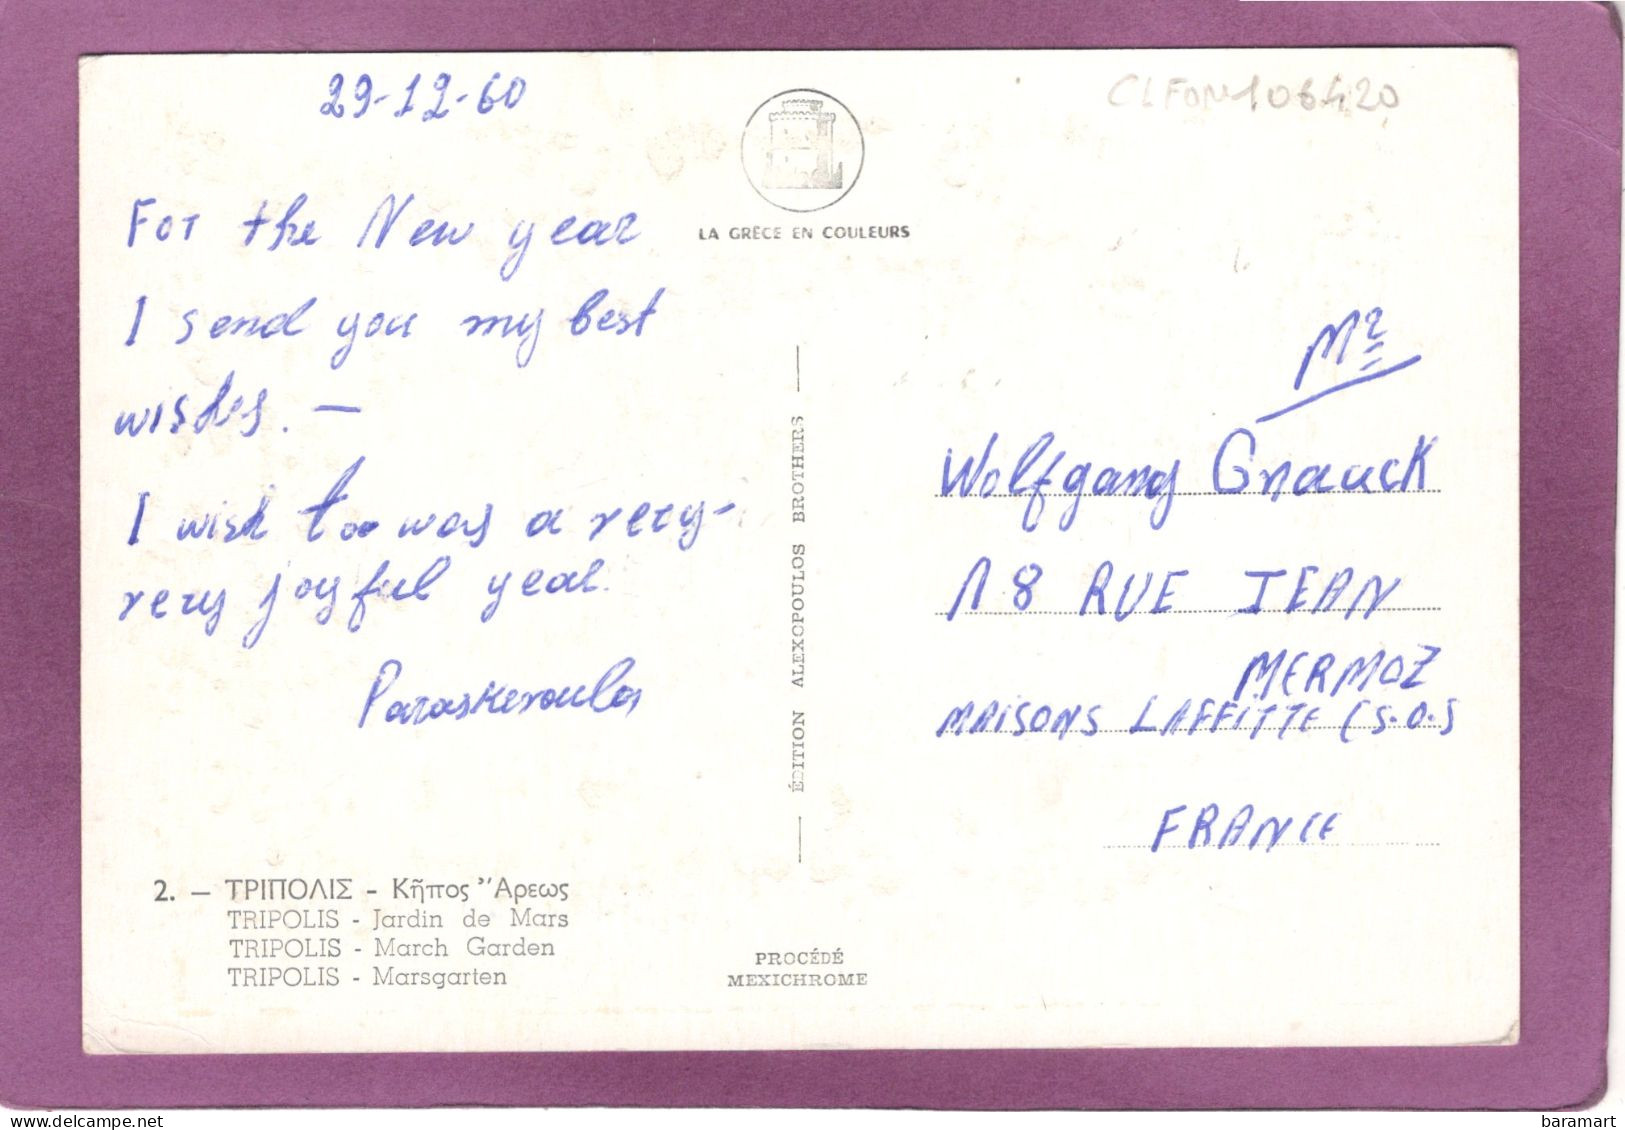 29-12-60
For the New year
I send you my best
wishes. —
I wish too was a very-
very joyful year.
Paraskevoulas
LA GRÈCE EN COULEURS
ÉDITION ALEXOPOULOS BROTHERS
CLFON106420
Mr
Wolfgang Gnauck
18 RUE JEAN
MERMOZ
MAISONS LAFFITTE (S.O.S
FRANCE
2. — ΤΡΙΠΟΛΙΣ - Κῆπος Ἄρεως
TRIPOLIS - Jardin de Mars
TRIPOLIS - March Garden
TRIPOLIS - Marsgarten
PROCÉDÉ
MEXICHROME
delcampe.net
baramart